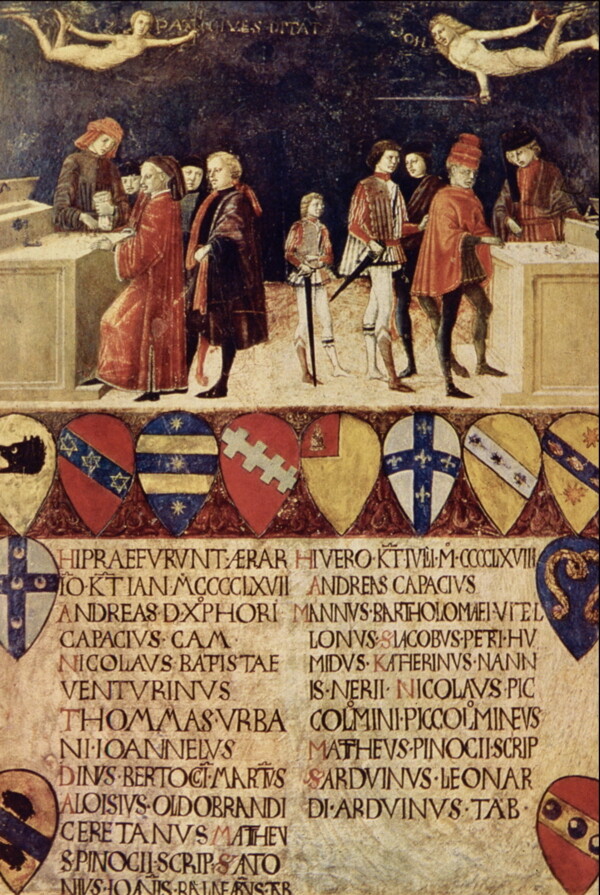 PAX CIVES DITAT
HI PRAEFVRVNT ÆRAR
IO·KT̄ IAN·M̊CCCCLXVII
ANDREAS·D·XP̊HORI
CAPACIVS·CAM·
NICOLAVS·BATISTAE
VENTVRINVS
THOMMAS·VRBA
NI·IOANNELVS
DINVS·BERTOCCI·MARTIVS
ALOISIVS·OLDOBRANDI
CERETANVS·MATHEV
S·PINOCII·SCRIP·SATO
NIVS·IOANIS·
HI VERO·KT̄ IVLI·M̊·CCCCLXVIII
ANDREAS CAPACIVS
MANNVS·BARTHOLOMAEI·VITEL
LONVS·S·IACOBVS·PETRI·HV
MIDVS·KATHERINVS·NANN
IS·NERII·NICOLAVS·PIC
COLOMINI·PICCOLOMINEVS
MATHEVS·PINOCII·SCRIP
SARDVINVS·LEONAR
DI·ARDVINVS·TAB·